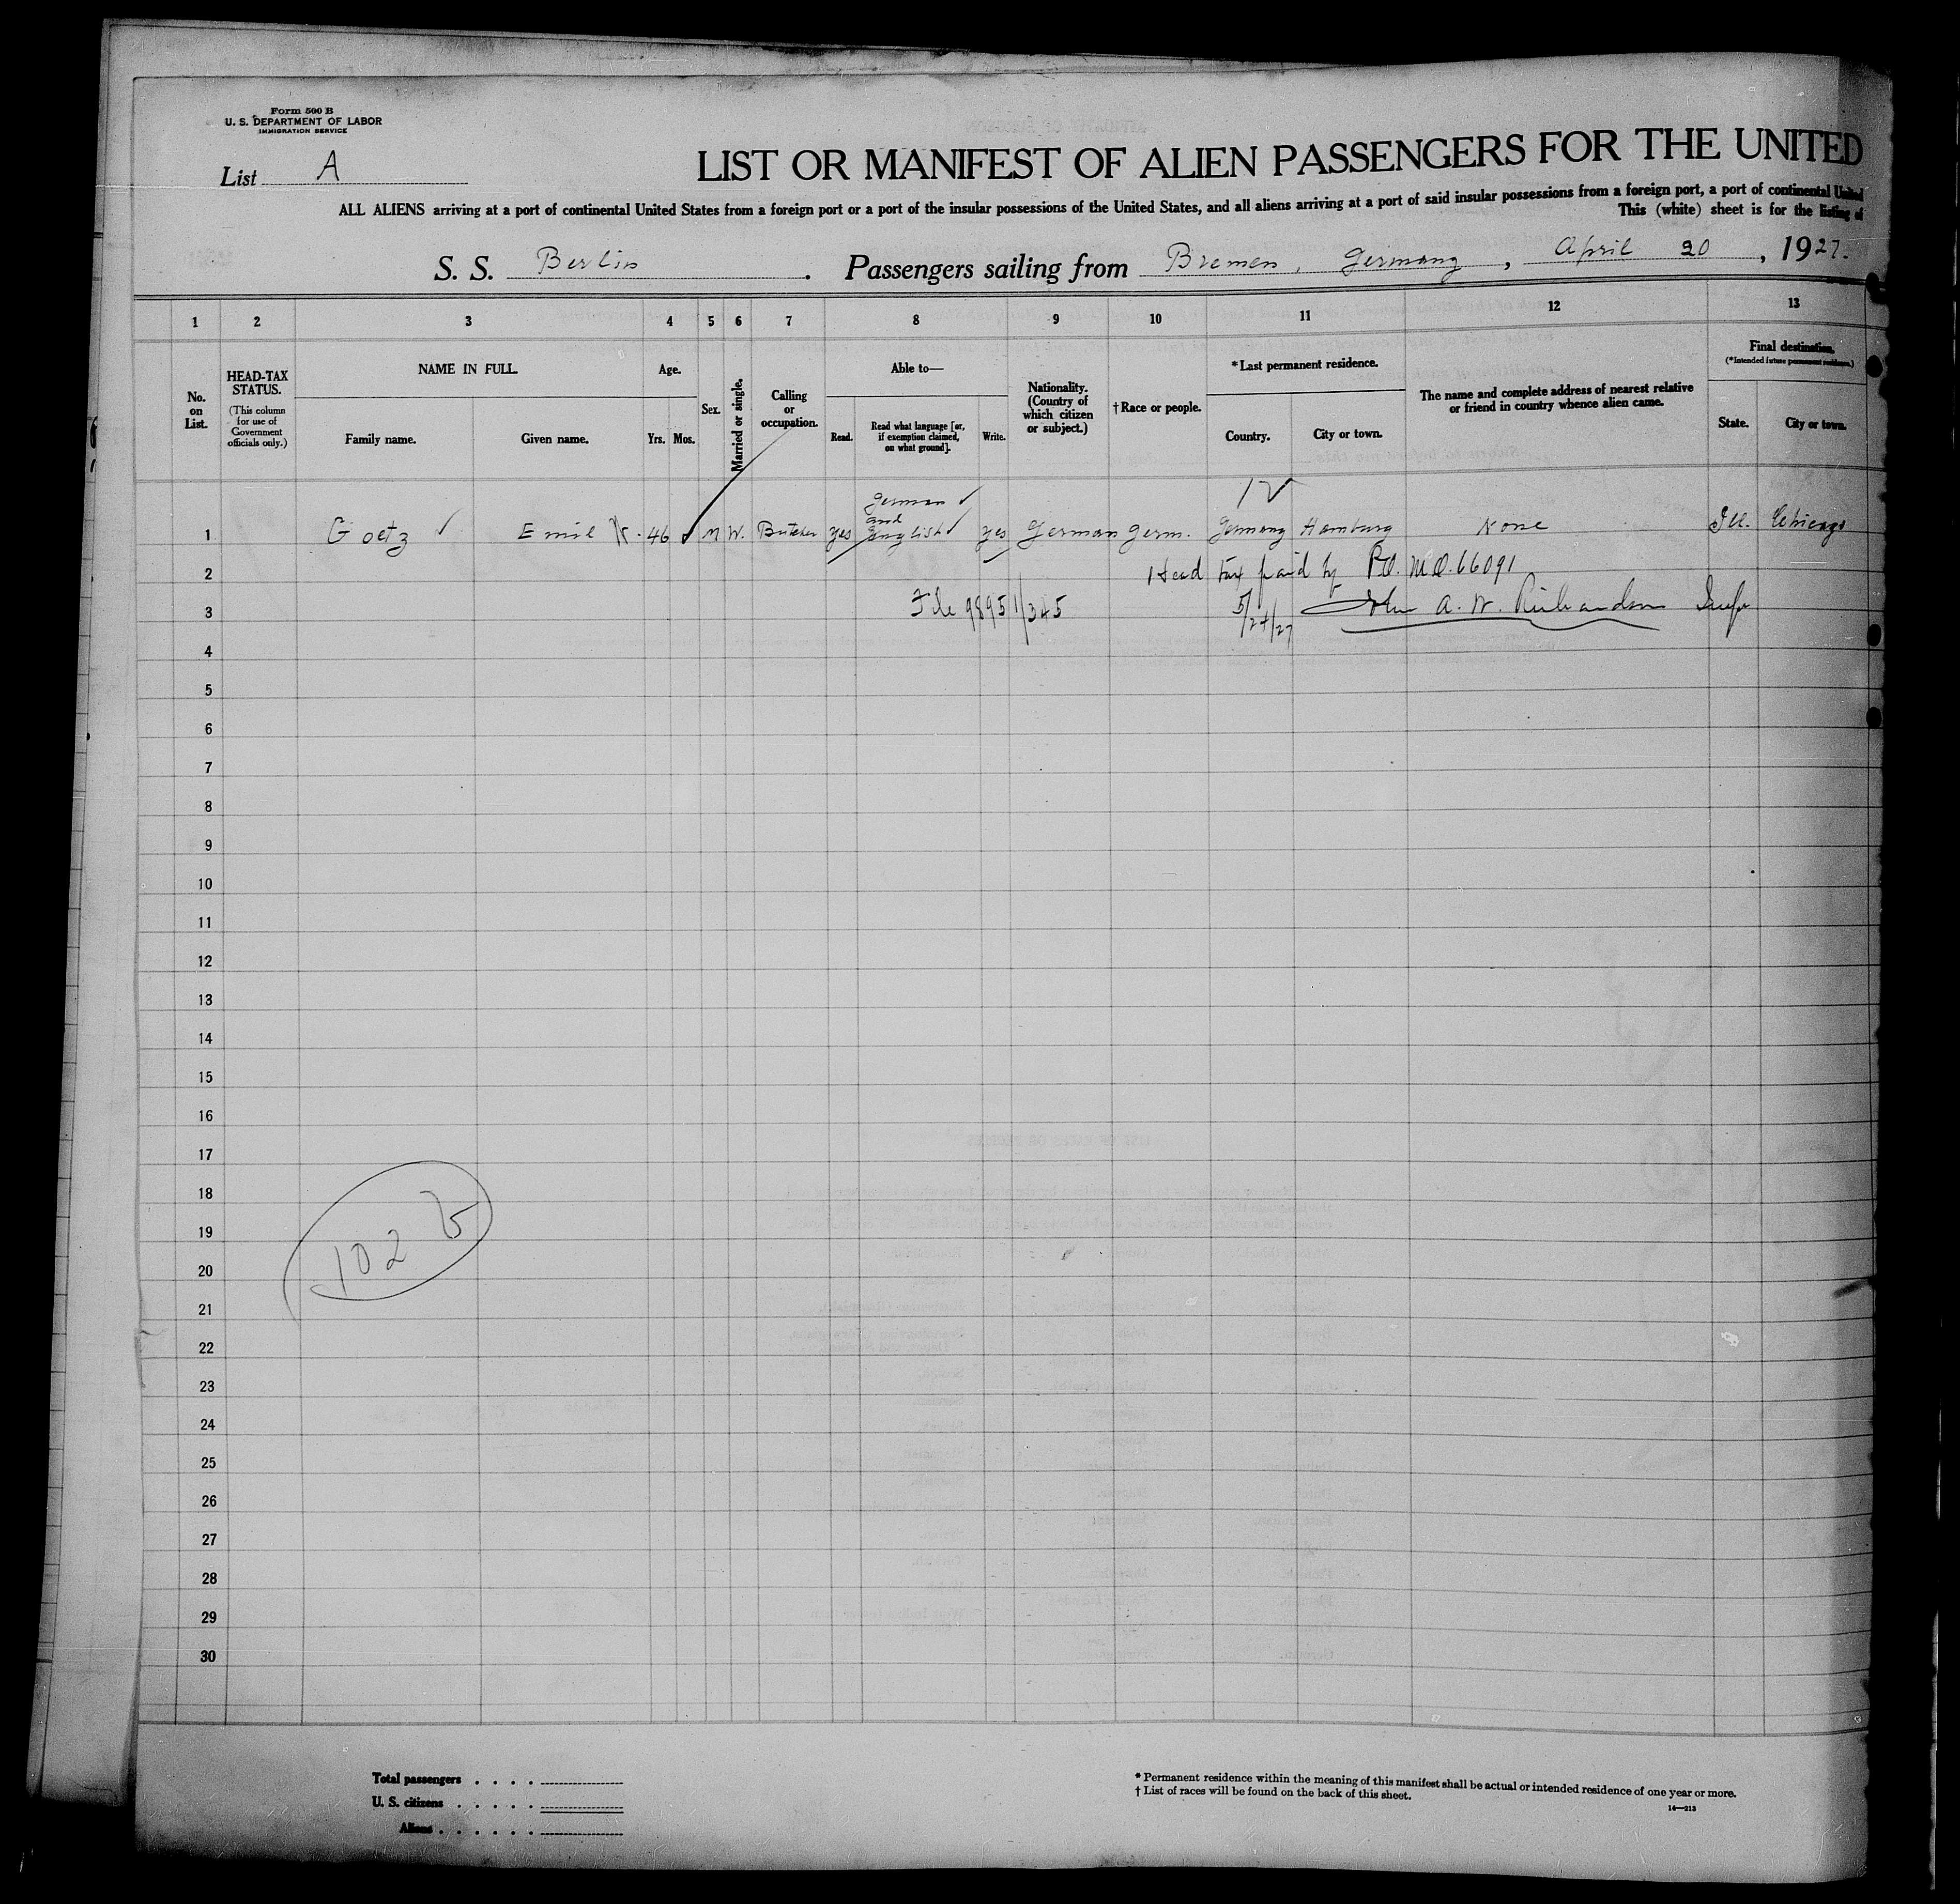 Form 500 B
U. S. DEPARTMENT OF LABOR
IMMIGRATION SERVICE
List A
LIST OR MANIFEST OF ALIEN PASSENGERS FOR THE UNITED
ALL ALIENS arriving at a port of continental United States from a foreign port or a port of the insular possessions of the United States, and all aliens arriving at a port of said insular possessions from a foreign port, a port of continental United
This (white) sheet is for the listing of
S. S. Berlin . Passengers sailing from Bremen, Germany, April 20, 1927.
1 2 3 4 5 6 7 8 9 10 11 12 13
No. on List.
HEAD-TAX STATUS.
(This column for use of Government officials only.)
NAME IN FULL.
Family name. Given name.
Age.
Yrs. Mos.
Sex.
Married or single.
Calling or occupation.
Able to—
Read. Read what language [or, if exemption claimed, on what ground]. Write.
Nationality. (Country of which citizen or subject.)
† Race or people.
* Last permanent residence.
Country. City or town.
The name and complete address of nearest relative or friend in country whence alien came.
Final destination.
(*Intended future permanent residence.)
State. City or town.
1 Goetz Emil K. 46 M W. Butcher yes German and English yes German Germ. Germany Hamburg None Ill. Chicago
2 Head tax paid by P.O. M.O. 66091
3 File 98951/345 5/24/27 John A. W. Richardson Insp
4
5
6
7
8
9
10
11
12
13
14
15
16
17
18
19
102
20
21
22
23
24
25
26
27
28
29
30
Total passengers
U. S. citizens
Aliens
* Permanent residence within the meaning of this manifest shall be actual or intended residence of one year or more.
† List of races will be found on the back of this sheet.
14—213